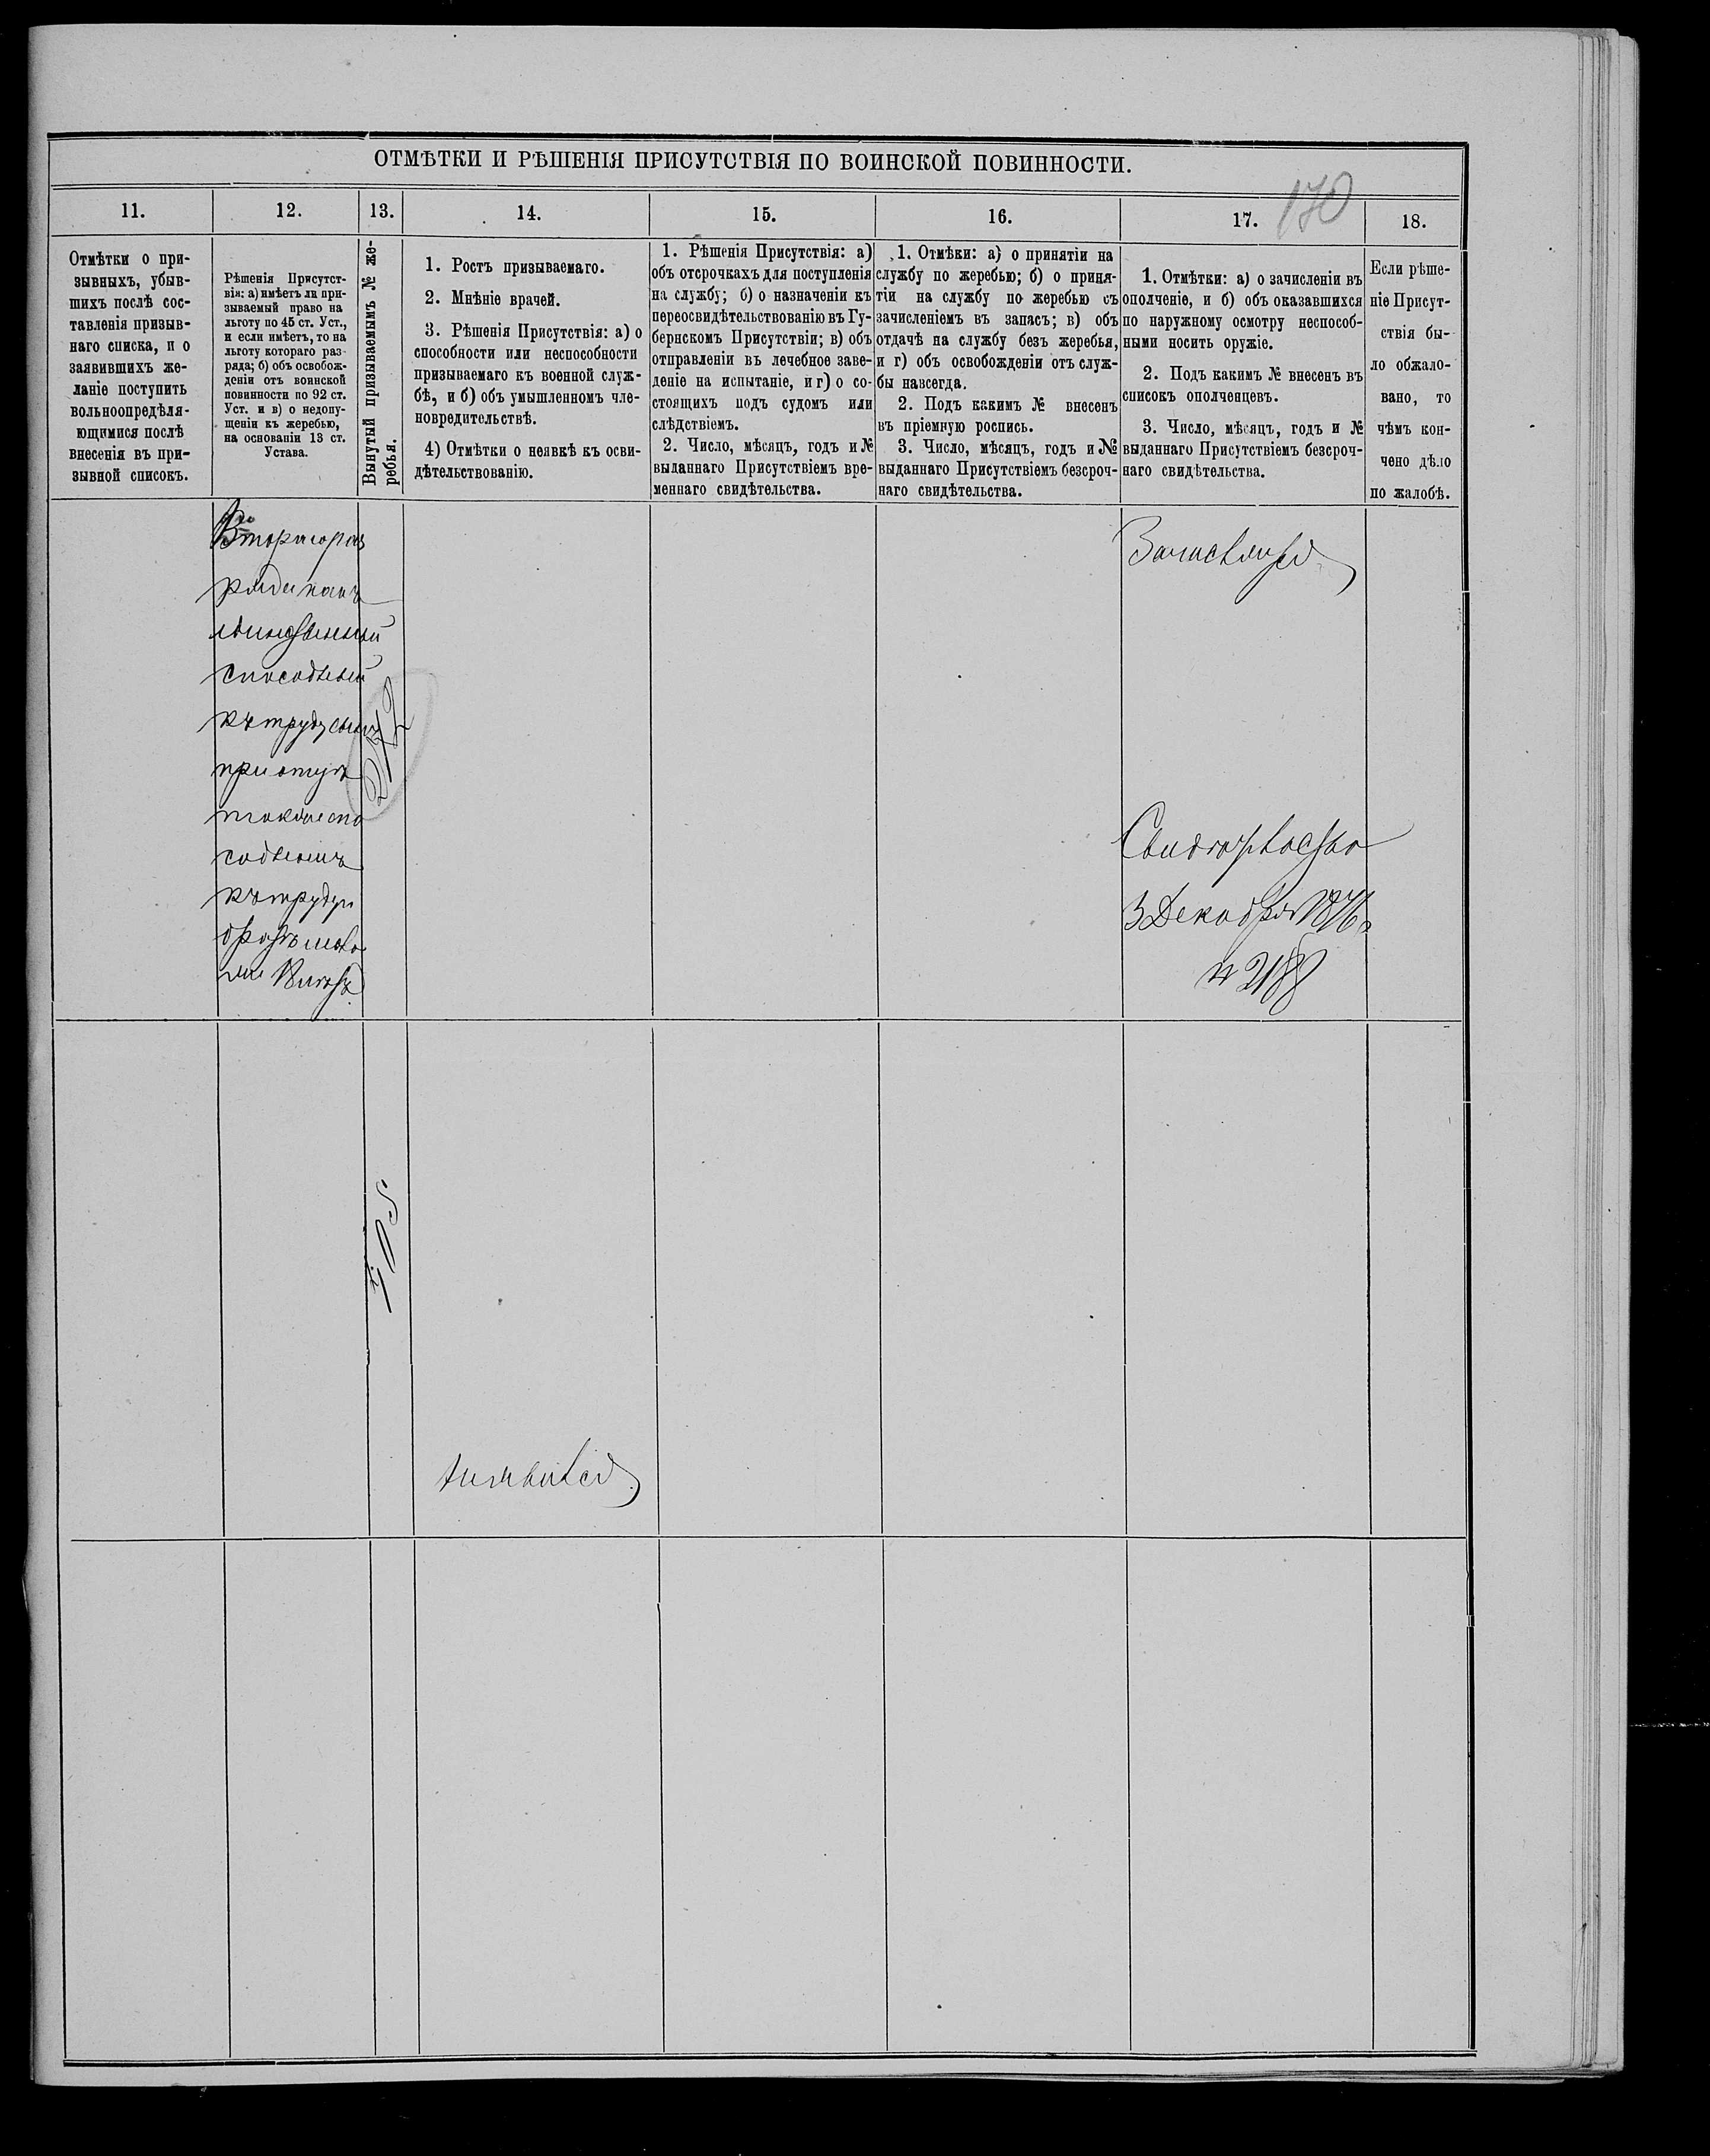 ОТМѢТКИ И РѢШЕНІЯ ПРИСУТСТВІЯ ПО ВОИНСКОЙ ПОВИННОСТИ.
170
11.
12.
13.
14.
15.
16.
17.
18.
Отмѣтки о при-
зывныхъ, убыв-
шихъ послѣ сос-
тавленія призыв-
наго списка, и о
заявившихъ же-
ланіе поступить
вольноопредѣля-
ющимися послѣ
внесенія въ при-
зывной списокъ.
Рѣшенія Присутст-
вія: а) имѣетъ ли при-
зываемый право на
льготу по 45 ст. Уст.,
и если имѣетъ, то на
льготу котораго раз-
ряда; б) объ освобож-
деніи отъ воинской
повинности по 92 ст.
Уст. и в) о недопу-
щеніи къ жеребью,
на основаніи 13 ст.
Устава.
Вынутый призываемымъ № же-
ребья.
1. Ростъ призываемаго.
2. Мнѣніе врачей.
3. Рѣшенія Присутствія: а) о
способности или неспособности
призываемаго къ военной служ-
бѣ, и б) объ умышленномъ чле-
новредительствѣ.
4) Отмѣтки о неявкѣ къ осви-
дѣтельствованію.
1. Рѣшенія Присутствія: а)
объ отсрочкахъ для поступленія
на службу; б) о назначеніи къ
переосвидѣтельствованію въ Гу-
бернскомъ Присутствіи; в) объ
отправленіи въ лечебное заве-
деніе на испытаніе, и г) о со-
стоящихъ подъ судомъ или
слѣдствіемъ.
2. Число, мѣсяцъ, годъ и №
выданнаго Присутствіемъ вре-
меннаго свидѣтельства.
1. Отмѣки: а) о принятіи на
службу по жеребью; б) о приня-
тіи на службу по жеребью съ
зачисленіемъ въ запасъ; в) объ
отдачѣ на службу безъ жеребья,
и г) объ освобожденіи отъ служ-
бы навсегда.
2. Подъ какимъ № внесенъ
въ пріемную роспись.
3. Число, мѣсяцъ, годъ и №
выданнаго Присутствіемъ безсроч-
наго свидѣтельства.
1. Отмѣтки: а) о зачисленіи въ
ополченіе, и б) объ оказавшихся
по наружному осмотру неспособ-
ными носить оружіе.
2. Подъ какимъ № внесенъ въ
списокъ ополченцевъ.
3. Число, мѣсяцъ, годъ и №
выданнаго Присутствіемъ безсроч-
наго свидѣтельства.
Если рѣше-
ніе Присут-
ствія бы-
ло обжало-
вано, то
чѣмъ кон-
чено дѣло
по жалобѣ.
Втораго раз
ряда какъ
единственный
способный
къ труду сынъ
при отцѣ
также спо
собномъ
къ труду и
братѣ моло
же 18 лѣтъ
Зачисляется
Свидѣтельство
3 Декабря 1876
405
Неявился